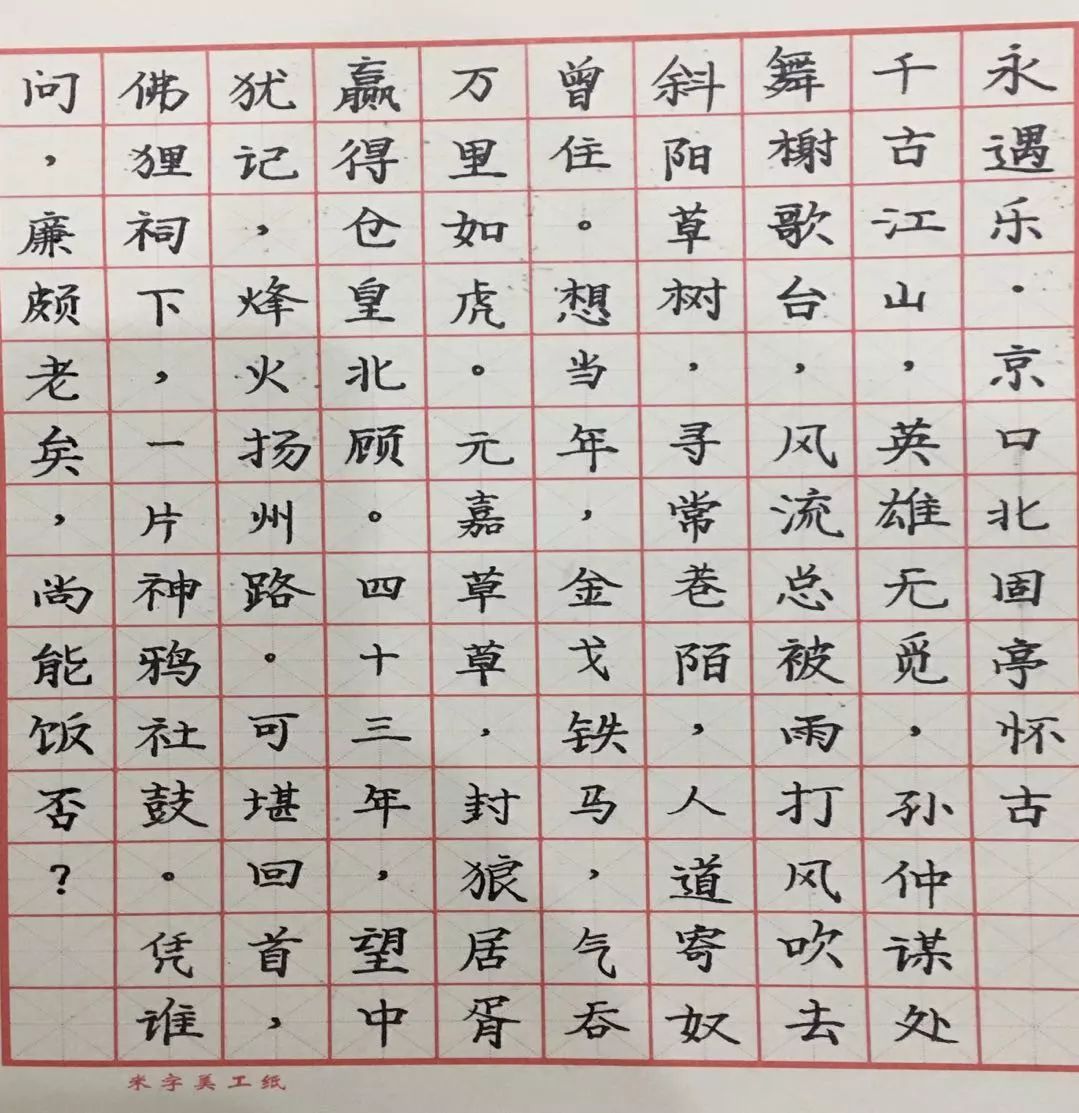 永遇乐·京口北固亭怀古
千古江山，英雄无觅，孙仲谋处
舞榭歌台，风流总被雨打风吹去
斜阳草树，寻常巷陌，人道寄奴
曾住。想当年，金戈铁马，气吞
万里如虎。元嘉草草，封狼居胥
赢得仓皇北顾。四十三年，望中
犹记，烽火扬州路。可堪回首，
佛狸祠下，一片神鸦社鼓。凭谁
问，廉颇老矣，尚能饭否？
米字美工纸